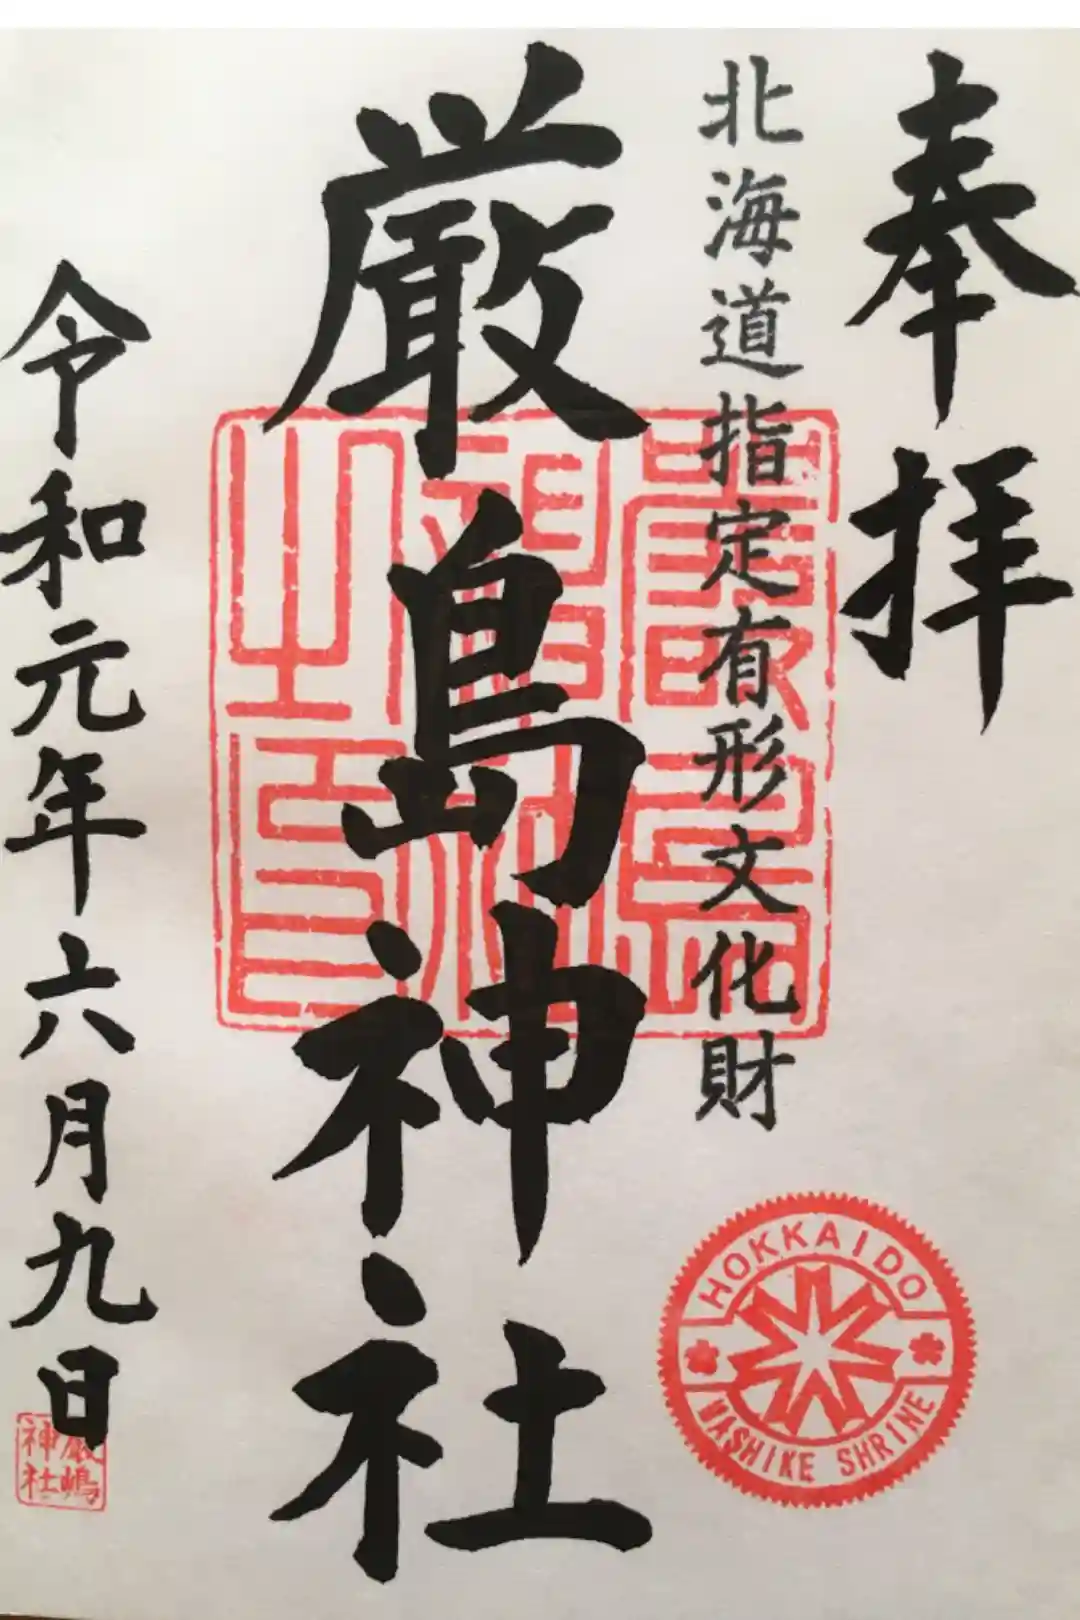 奉拝
北海道指定有形文化財
厳島神社
令和元年六月九日
厳嶋
神社
HOKKAIDO
MASHIKE SHRINE